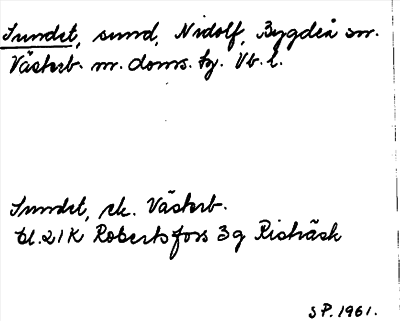 Sundet, sund, Nidolf, Bygdeå sn.
Västerb. n. doms. tg. Vb. l.
Sundet, ek. Västerb.
bl. 21K Robertsfors 3g Risträsk
SP. 1961.